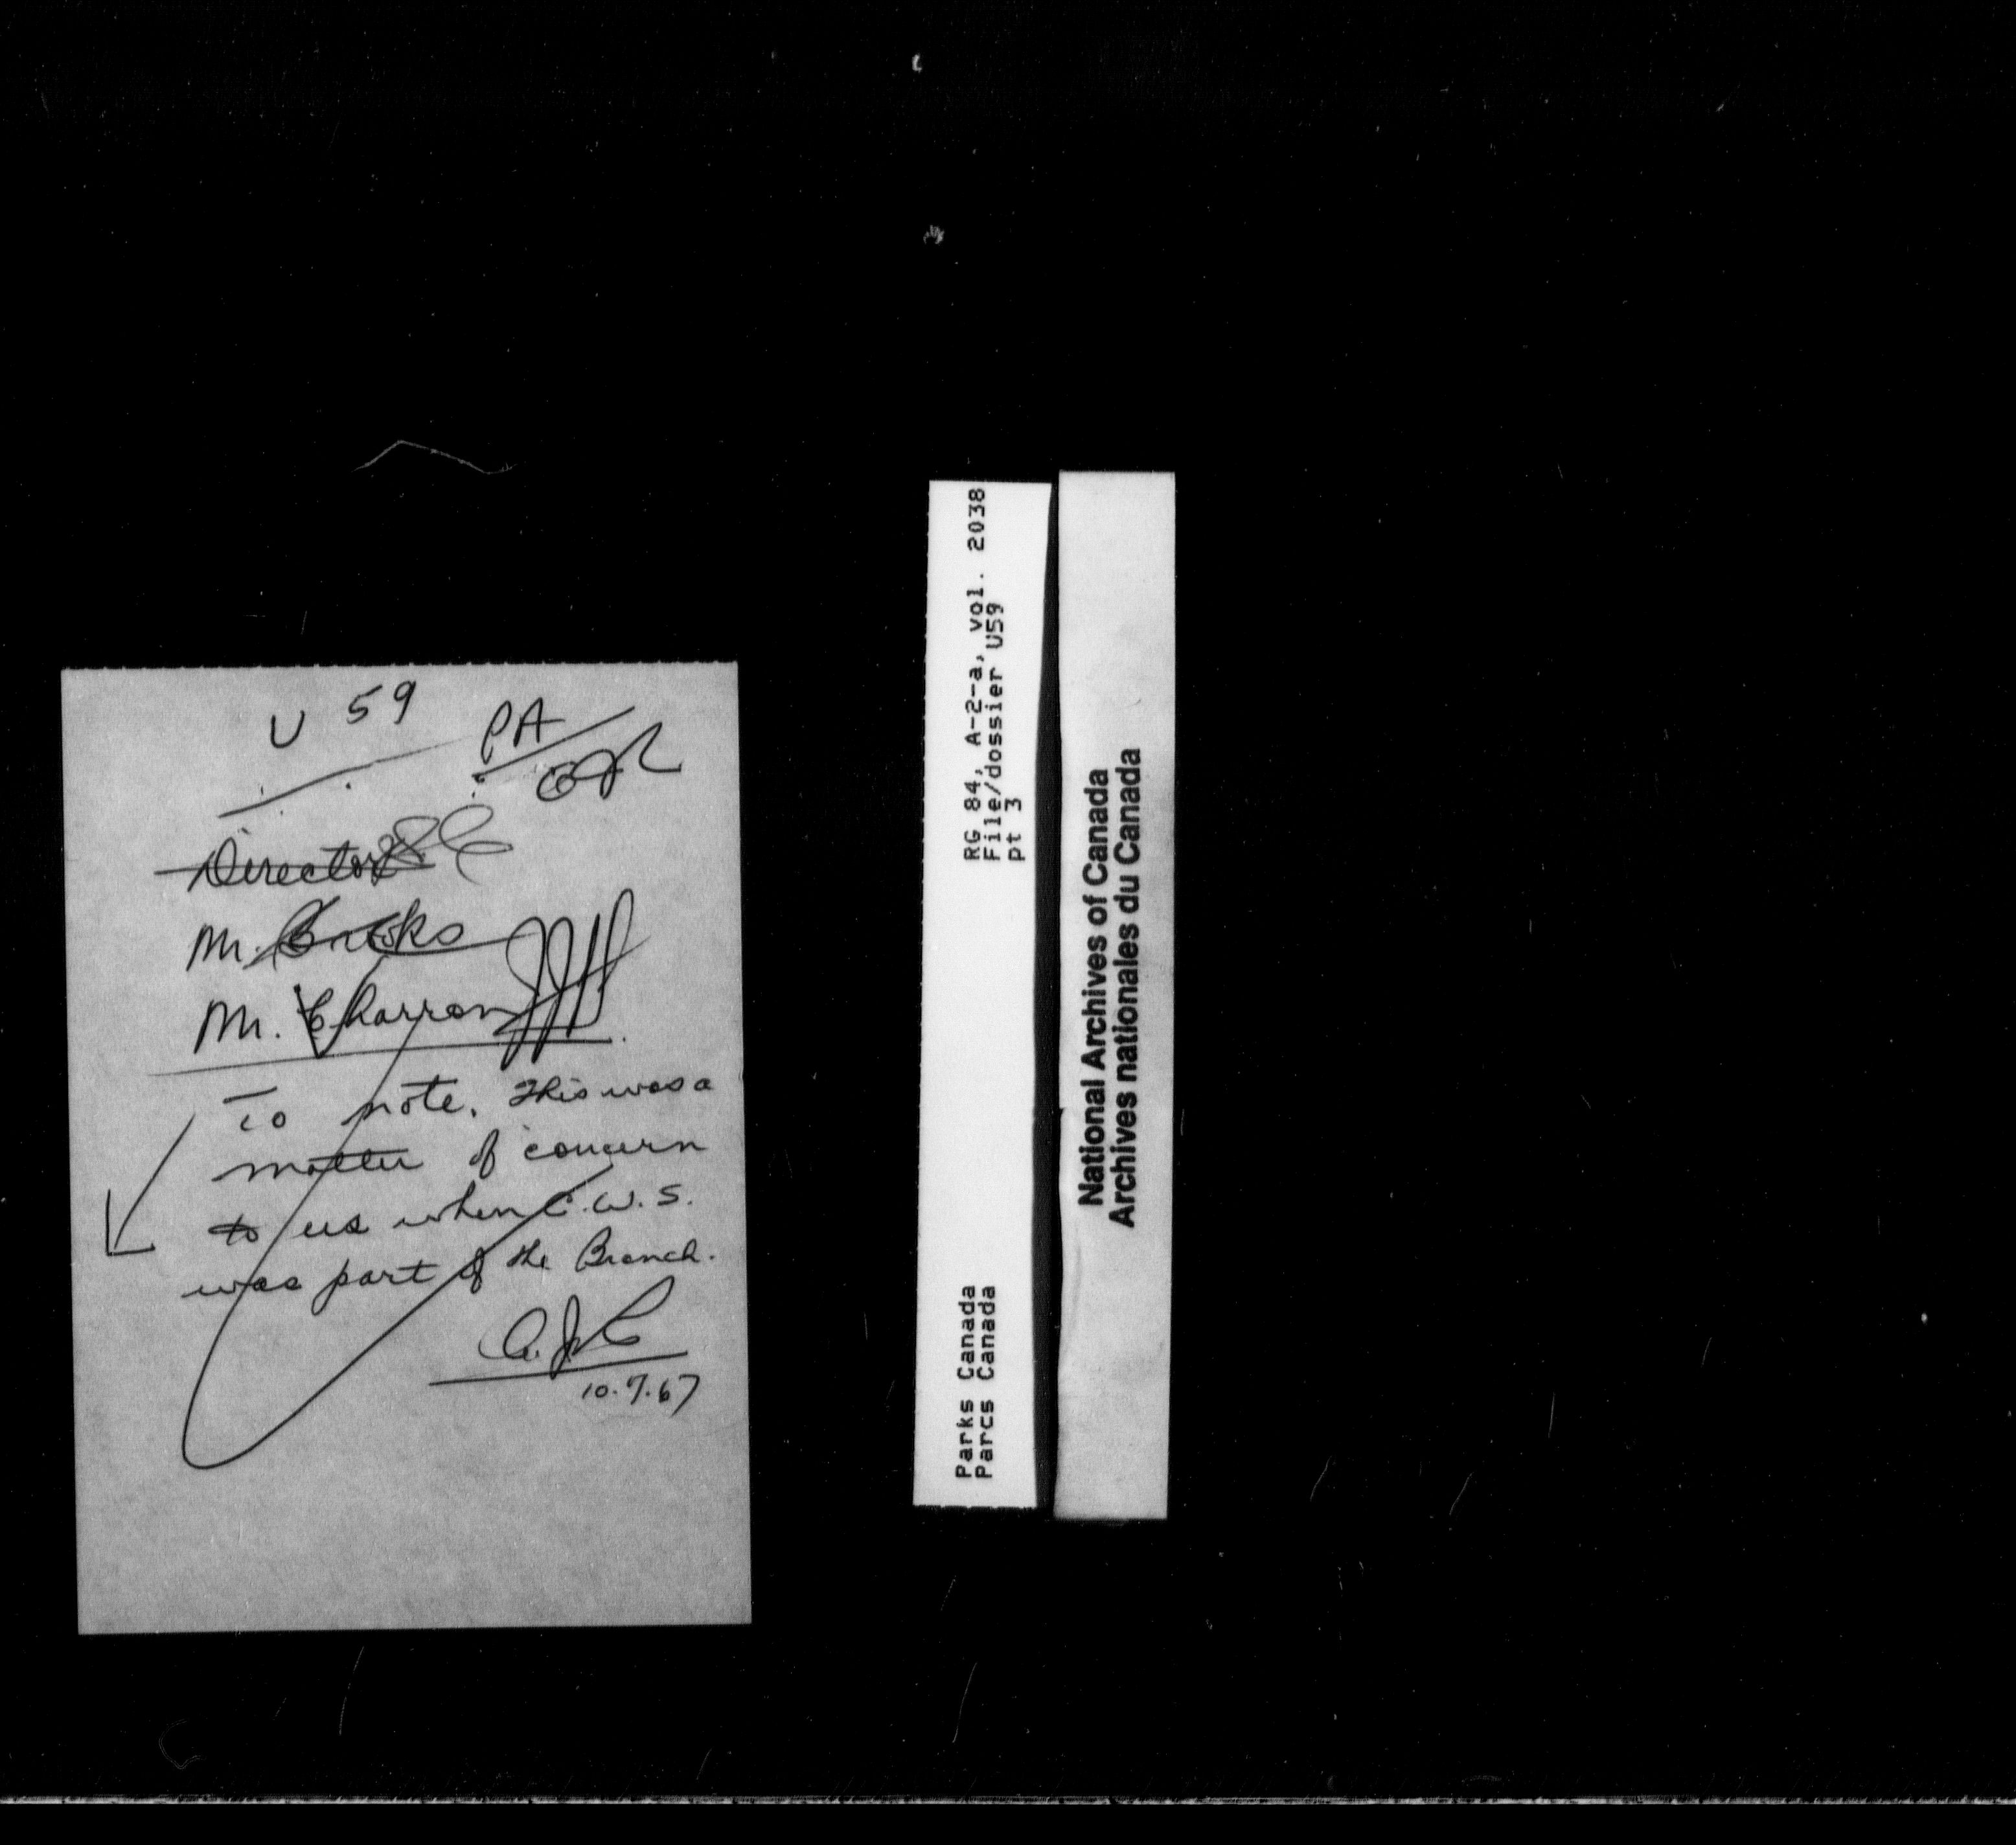 U 59
PA
Director
Mr.
Mr. Charron
To note. This was a
matter of concern
to us when C.W.S.
was part of the Branch.
10.7.67
RG 84, A-2-a, vol. 2038
File/dossier U59
pt 3
Parks Canada
Parcs Canada
National Archives of Canada
Archives nationales du Canada